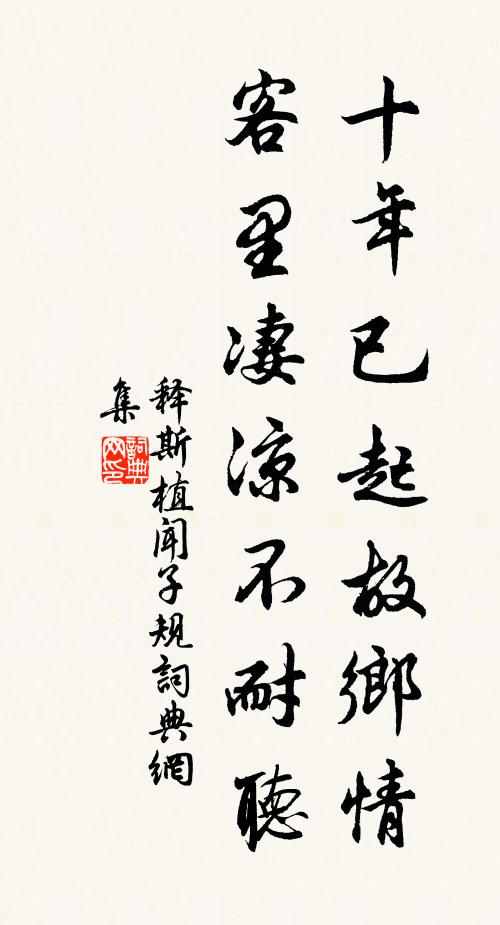 十年已起故鄉情
客里凄涼不耐聽
释斯植聞子規詞典網
集
詞典
网印